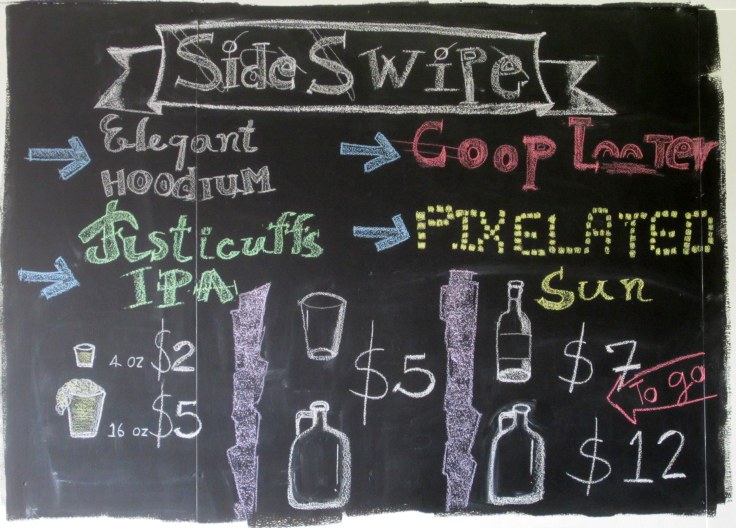 Side Swipe
Elegant
HOODIUM
Coop Looter
Fisticuffs
IPA
PIXELATED
Sun
4 oz $2
16 oz $5
$5
$7
To go
$12